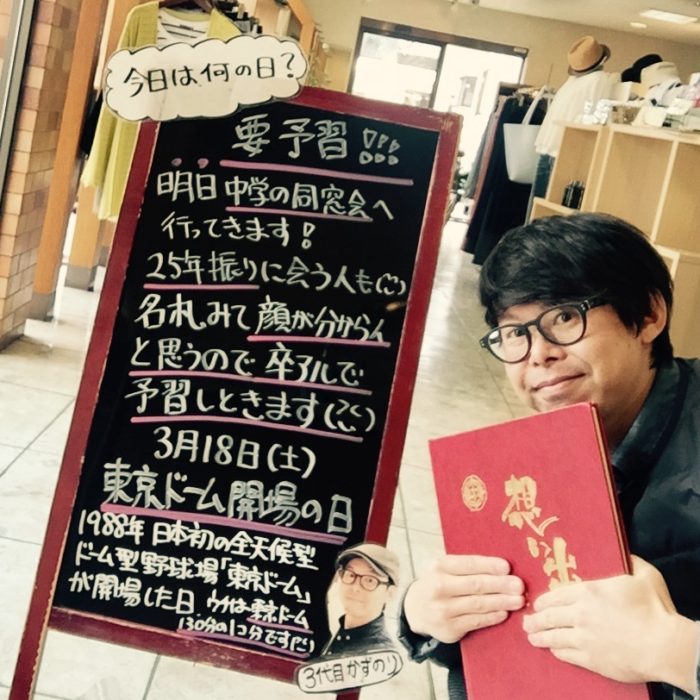 今日は何の日?
要予習!!!
明日中学の同窓会へ
行ってきます!
25年振りに会う人も
名札みて顔が分からん
と思うので卒アルで
予習しときます
3月18日(土)
東京ドーム開場の日
1988年日本初の全天候型
ドーム型野球場「東京ドーム」
が開場した日。ウチは東京ドーム
130分の1コ分です
3代目かずのり
想い出